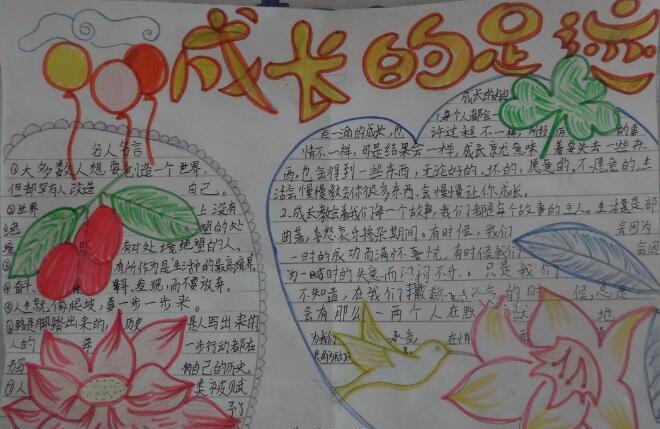 成长的足迹
名人名言
①大多数人想要创造一个世界,
但却没有人改造 自己。
②世界 上没有
绝 望的处
境 有对处境绝望的人。
有所作为是生活中的最高境界
④奋斗 发现,而不屈服。
⑤人生就像爬坡,要一步一步来。
⑥路是脚踏出来的,历史 是人写出来的
人的 一步行动都在
自己的历史。
⑦人 类被赋
予了
成长的
1.每个人都会
点一滴的成长,也 许过程不一样, 的事
情不一样,可是结果会一样,成长就意味着要失去一些东
西,也会得到一些东西,无论好的、坏的,愿意的、不愿意的,生
活会慢慢教会你很多东西,会慢慢让你成长。
2.成长教会着我们每一个故事,我们都是每个故事的主人。生活是是部
曲著,喜怒哀乐掺杂期间。有时候,我们 会因为
一时的成功而满怀喜悦,有时候我们 会因
为一時时的失意而闷闷不乐。只是我们
不知道,在我们 的时候,总是
会有那么一两个人在默默 地
为我们